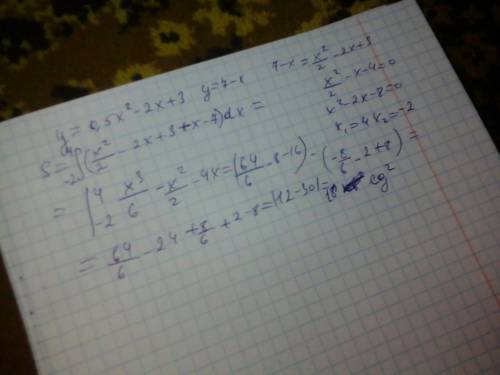 y = 0,5x² - 2x + 3   y = 7 - x
7 - x = x²/2 - 2x + 3
x²/2 - x - 4 = 0
x² - 2x - 8 = 0
x₁ = 4 x₂ = -2
S = ∫₋₂⁴ (x²/2 - 2x + 3 + x - 7) dx =
= |₋₂⁴ x³/6 - x²/2 - 4x = (64/6 - 8 - 16) - (-8/6 - 2 + 8) =
= 64/6 - 24 + 8/6 + 2 - 8 = |12 - 30| = 18 ед²